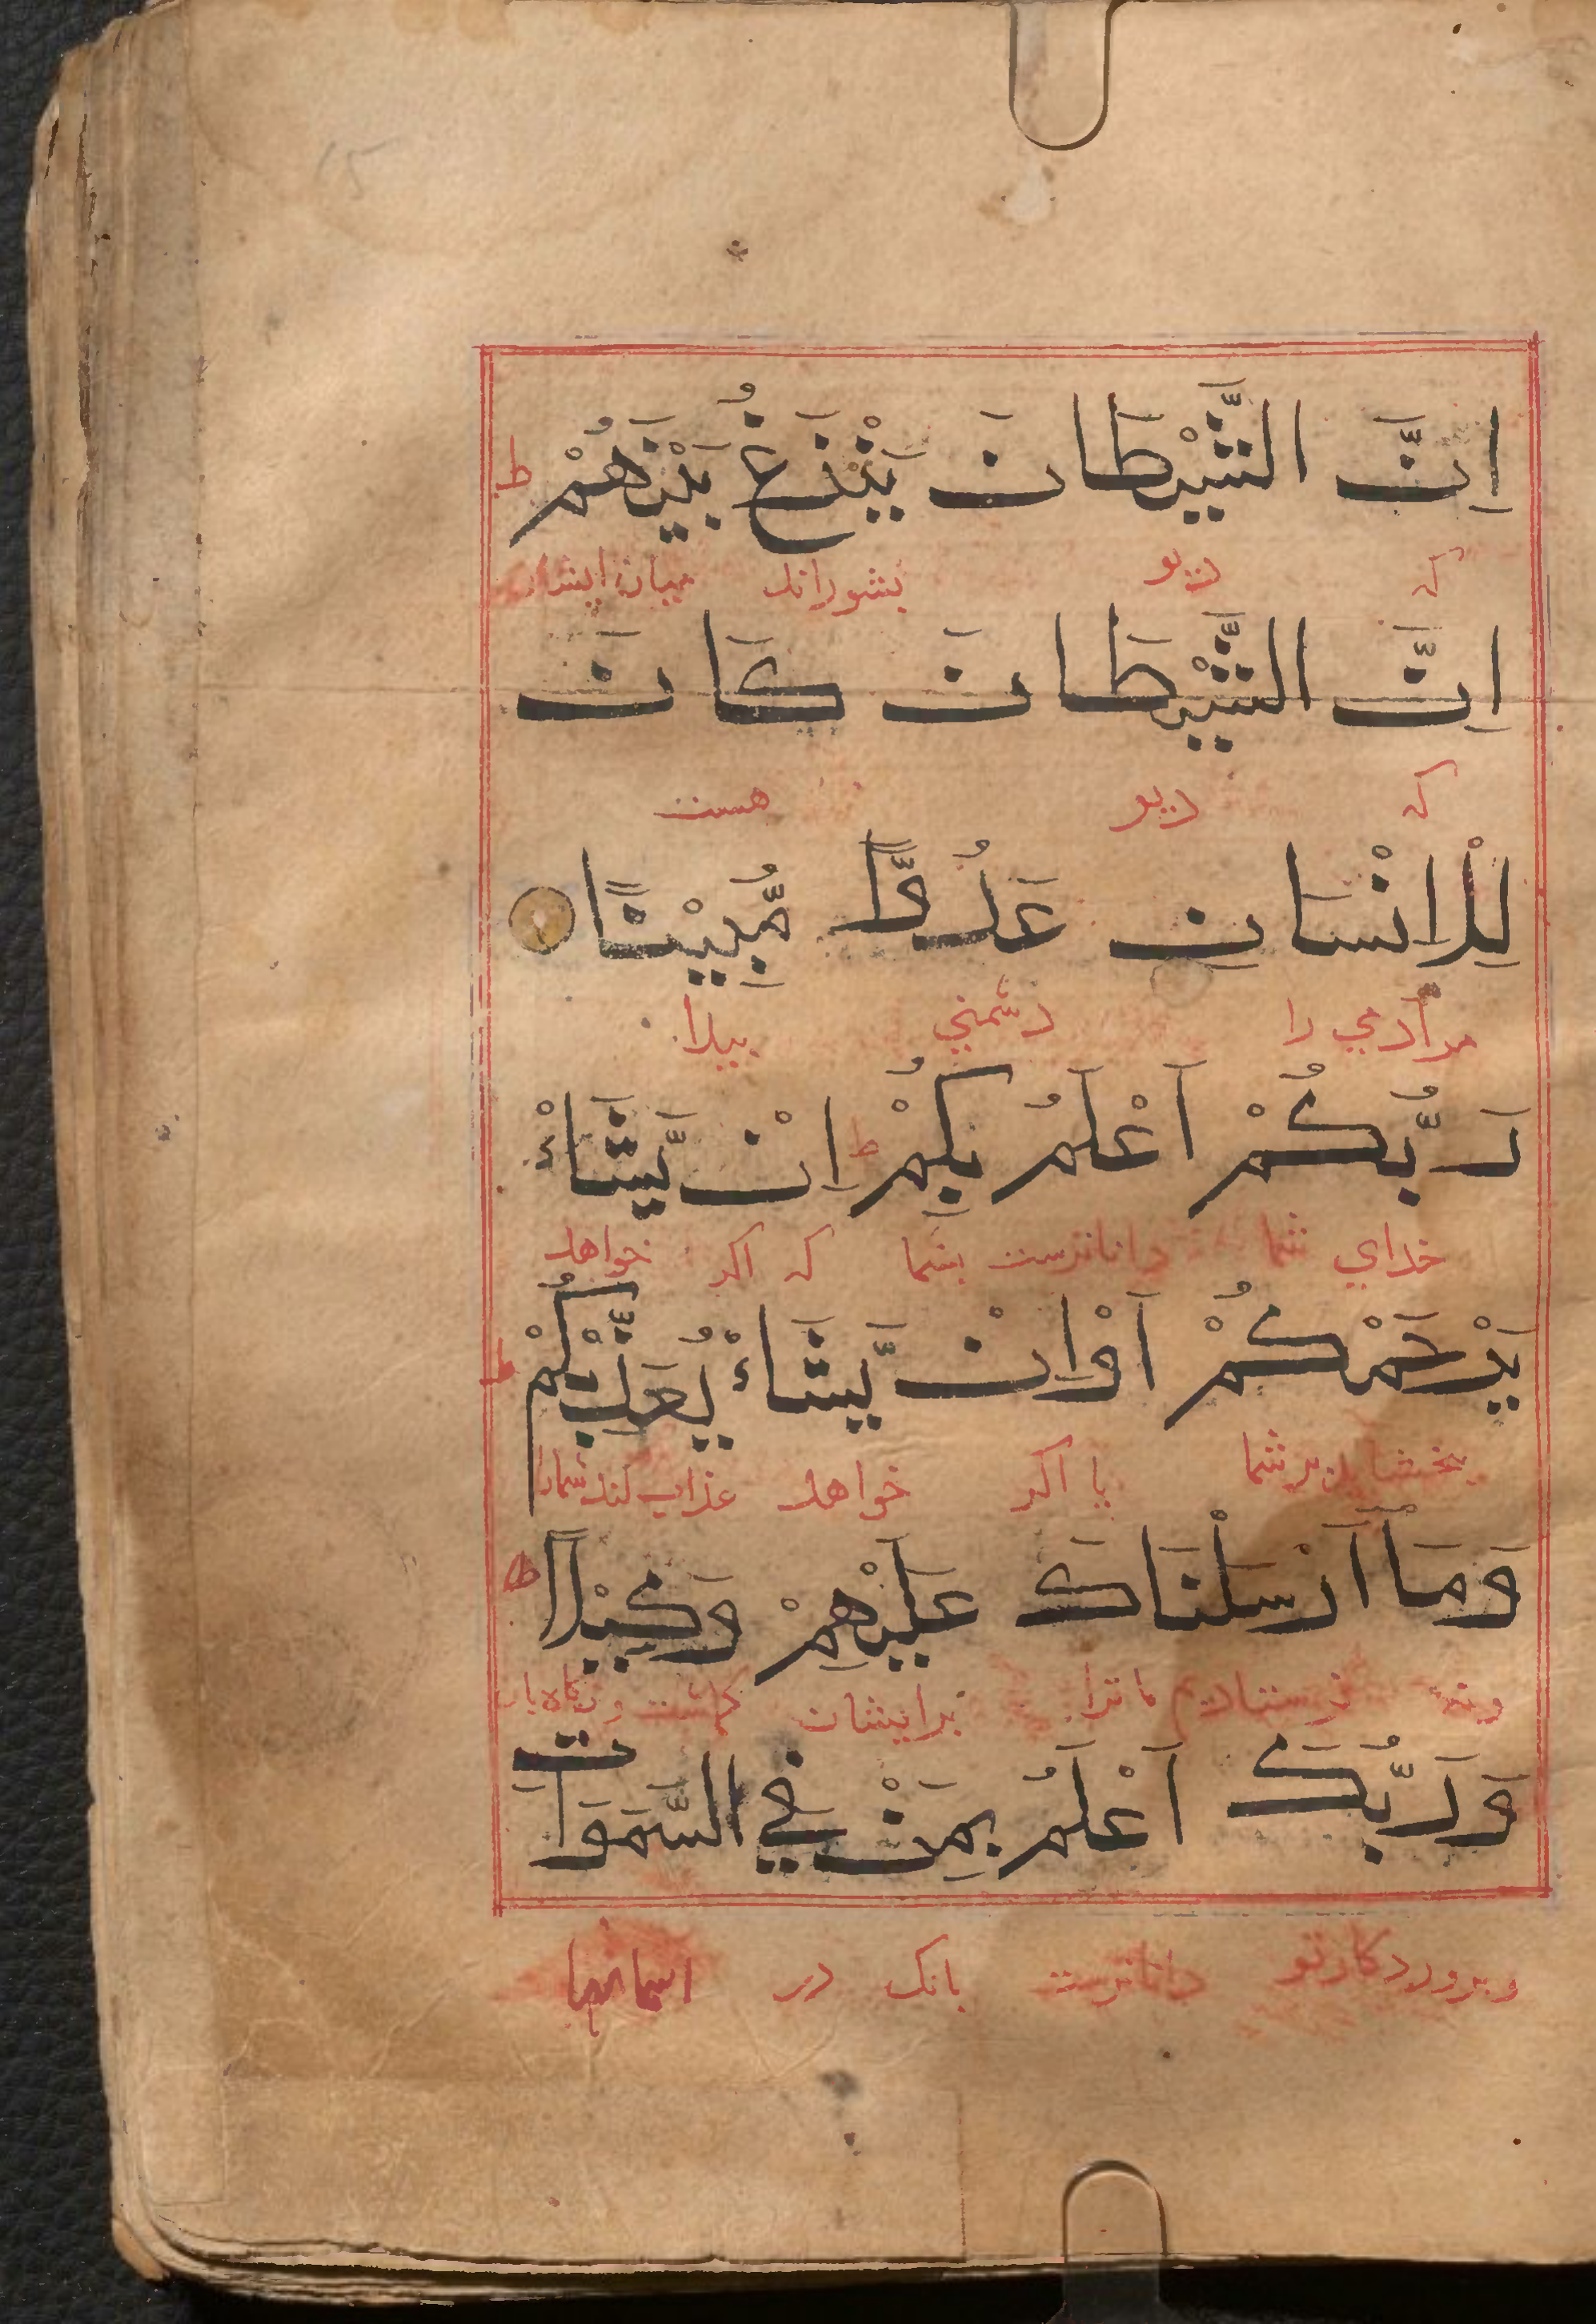 اِنَّ الشَّيْطَانَ يَنْزَغُ بَيْنَهُمْ ط
که دیو بشوراند میان ایشان
اِنَّ الشَّيْطَانَ كَانَ
که دیو هست
لِلْاِنْسَانِ عَدُوًّا مُّبِيْنًا
مر آدمي را دشمني پیدا
رَبُّكُمْ اَعْلَمُ بِكُمْ ط اِنْ يَّشَاْءْ
خدای شما داناترست بشما که اکر خواهد
يَرْحَمْكُمْ اَوْ اِنْ يَّشَاْءْ يُعَذِّبْكُمْ ط
بخشاید بر شما یا اکر خواهد عذاب کند شمارا
وَمَا اَرْسَلْنَاكَ عَلَيْهِمْ وَكِيْلًا ط
ونه فرستادیم ما ترا برایشان
وَرَبُّكَ اَعْلَمُ بِمَنْ فِي السَّمَوَاتِ
وپروردکار تو داناترست بانک در اسمانها